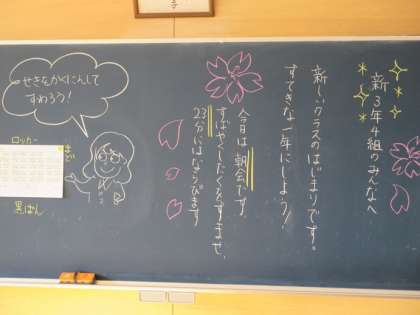 新3年4組のみんなへ
新しいクラスのはじまりです。
すてきな一年にしよう!
今日は朝会です。
すばやくしたくをすませ、
23分にはならびます
せきをかくにんして
すわろう!
ロッカー
まど
黒ばん